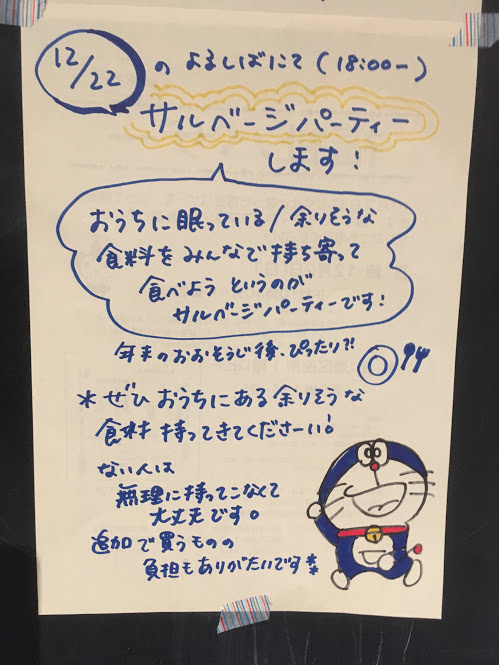 12/22 の よるしばにて (18:00ー)
サルベージパーティー
します!
おうちに眠っている/余りそうな
食料をみんなで持ち寄って
食べよう というのが
サルベージパーティーです!
年末のおおそうじ後、ぴったり?!
*ぜひ おうちにある余りそうな
食料 持ってきてくださーい!
ない人は
無理に持ってこなくて
大丈夫です。
追加で買うものの
負担もありがたいです**